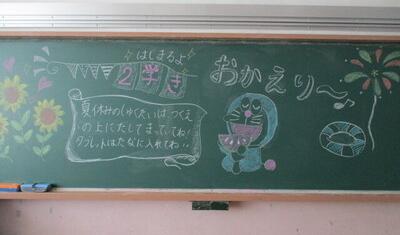 はじまるよ
2学き
おかえり〜
夏休みのしゅくだいは、つくえ
の上にだしてまっていてね!
タブレットはたなに入れてね..